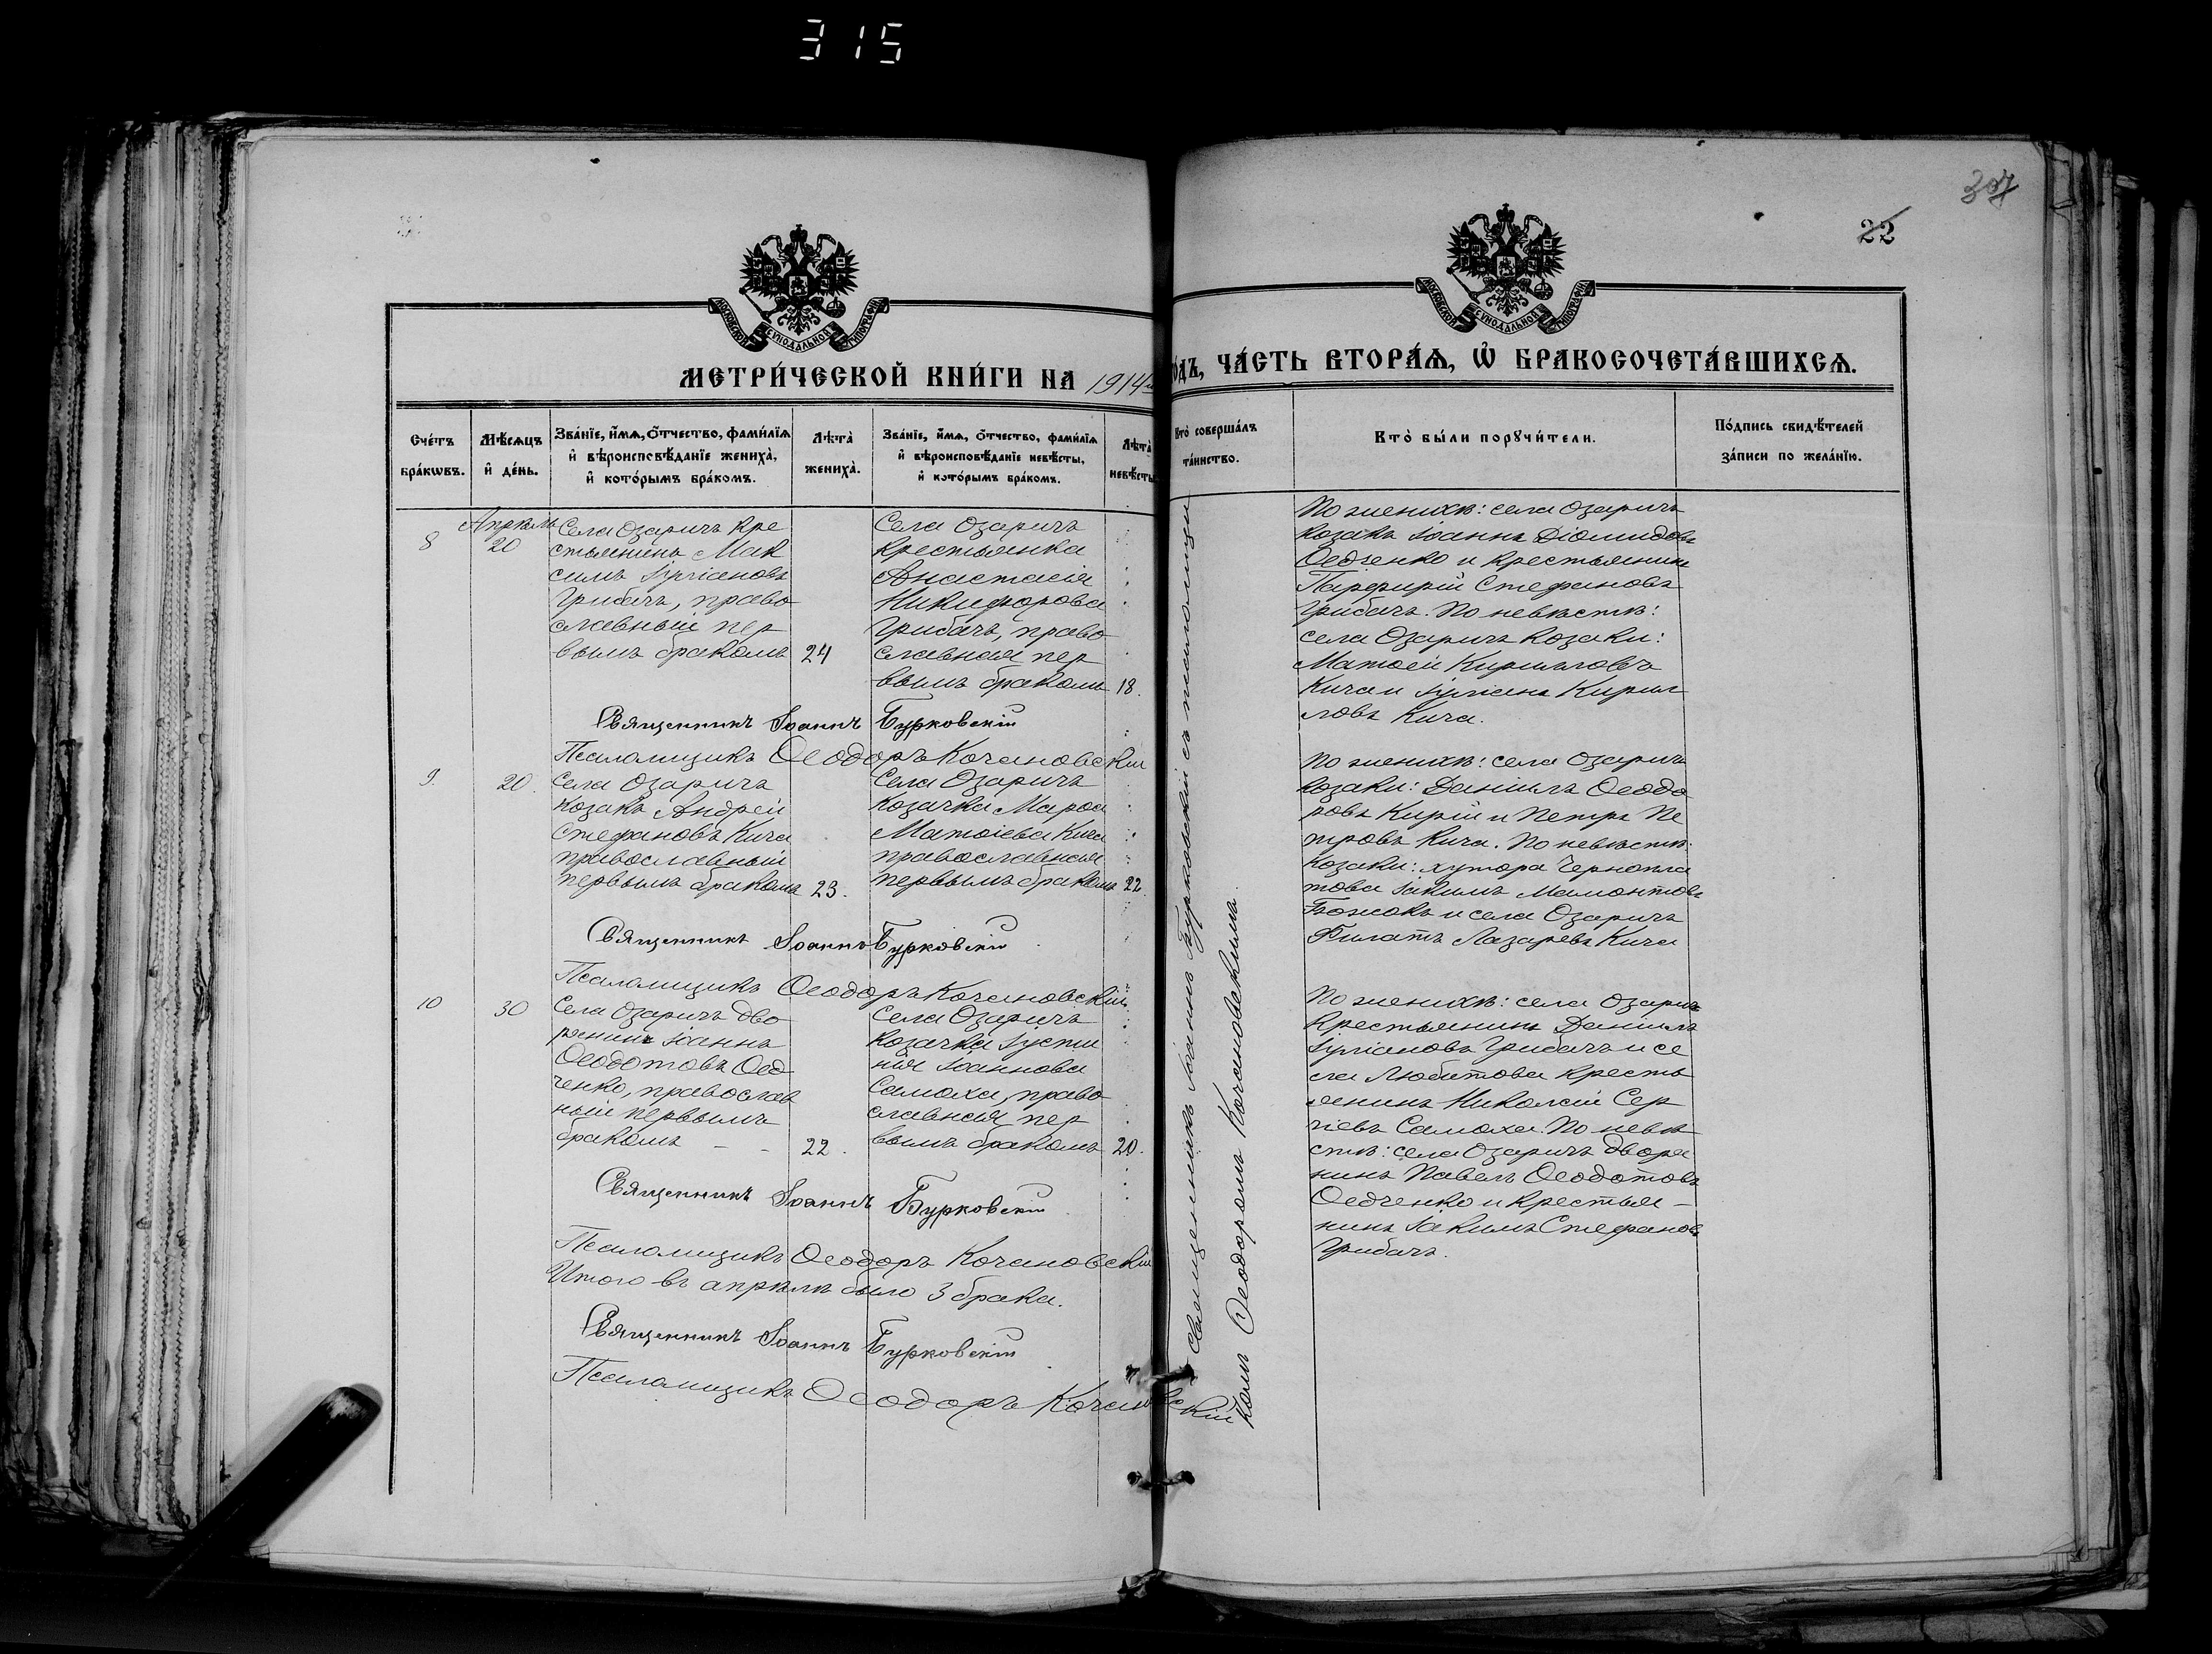 315
307
22
МОСКОВСКОЙ СУНОДАЛЬНОЙ ТИПОГРАФІИ
МОСКОВСКОЙ СУНОДАЛЬНОЙ ТИПОГРАФІИ
МЕТРИ́ЧЕСКОЙ КНИ́ГИ НА 1914й
ГО́ДЪ, ЧА́СТЬ ВТОРА́Ѧ, Ѽ БРАКОСОЧЕТА́ВШИХСѦ.
Сче́тъ
бра́кѡвъ.
Мѣ́сѧцъ
и҆ де́нь.
Зва́нїе, и҆́мѧ, ѻ҆́тчество, фами́лїѧ
и҆ вѣроисповѣ́данїе жениха̀,
и҆ кото́рымъ бра́комъ.
Лѣта̀
жениха̀.
Зва́нїе, и҆́мѧ, ѻ҆́тчество, фами́лїѧ
и҆ вѣроисповѣ́данїе невѣ́сты,
и҆ кото́рымъ бра́комъ.
Лѣта̀
невѣ́сты
Кто̀ соверша́лъ
та́инство.
Кто̀ бы́ли порꙋчи́тели.
По́дпись свидѣ́телей
за́писи по жела́нїю.
8
Апрѣль
20
Села Озаричъ кре
стьянинъ Мак
симъ Іуліановъ
Грибачъ, право
славный пер
вымъ бракомъ 24
Села Озаричъ
крестьянка
Анастасія
Никифорова
Грибачъ, право
славная пер
вымъ бракомъ 18.
По женихѣ: села Озаричъ
козакъ Іоаннъ Діомидовъ
Ѳедченко и крестьянинъ
Парфирій Стефановъ
Грибачъ. По невѣстѣ:
села Озаричъ козаки:
Матѳей Кирилловъ
Кича и Іуліанъ Кирил
ловъ Кича.
Священникъ Іоаннъ Бурковскій
Псаломщикъ Ѳеодоръ Кочановскій
9.
20.
Села Озаричъ
козакъ Андрей
Стефановъ Кича
православный
первымъ бракомъ 23.
Села Озаричъ
козачка Марѳа
Матѳіева Кича
православная
первымъ бракомъ 22.
По женихѣ: села Озаричъ
козаки: Даніилъ Ѳеодо
ровъ Кирій и Петръ Пе
тровъ Кича. По невѣстѣ:
козаки: хутора Чернопла
това Іакимъ Мамонтовъ
Божокъ и села Озаричъ
Филатъ Лазаревъ Кича
Священникъ Іоаннъ Бурковскій
Псаломщикъ Ѳеодоръ Кочановскій
10
30
Села Озаричъ дво
рянинъ Іоаннъ
Ѳеодотовъ Ѳед
ченко, православ
ный первымъ
бракомъ - - 22.
Села Озаричъ
козачка Іусти
нія Іоаннова
Самоха, право
славная пер
вымъ бракомъ 20.
По женихѣ: села Озаричъ
крестьянинъ Даніилъ
Іуліановъ Грибачъ и се
ла Любитова кресть
янинъ Николай Сер
гіевъ Самоха. По невѣ
стѣ: села Озаричъ дворя
нинъ Павелъ Ѳеодотовъ
Ѳедченко и крестья-
нинъ Іакимъ Стефановъ
Грибачъ.
Священникъ Іоаннъ Бурковскій
Псаломщикъ Ѳеодоръ Кочановскій
Итого въ апрѣлѣ было 3 брака.
Священникъ Іоаннъ Бурковскій
Псаломщикъ Ѳеодоръ Кочановскій
Священникъ Іоаннъ Бурковскій съ псаломщи
комъ Ѳеодоромъ Кочановскимъ.